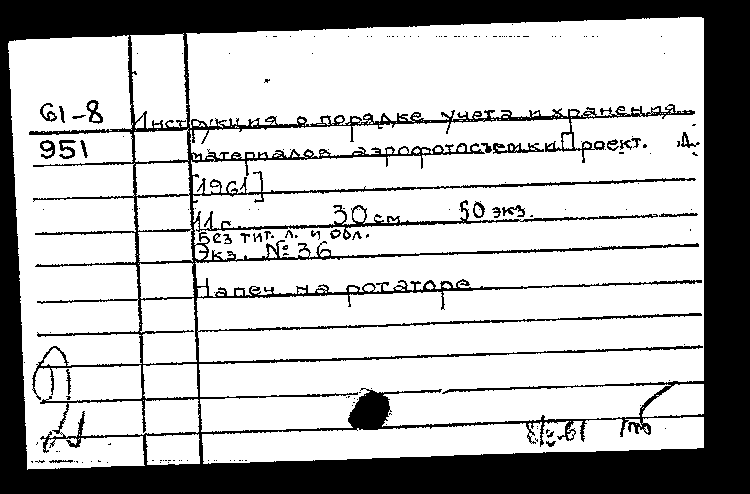 61-8 Инструкция о порядке учета и хранения
951 материалов аэрофотосъемки Проект. Л.
[1961]
11 с. 30 см. 50 экз.
Без тит. л. и обл.
Экз. № 36
Напеч на ротаторе